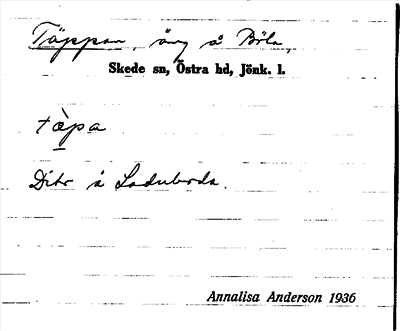 Täppan, äng å Böla,
Skede sn, Östra hd, Jönk. l.
tæ̀pa
Ditr å Ladubords.
Annalisa Anderson 1936